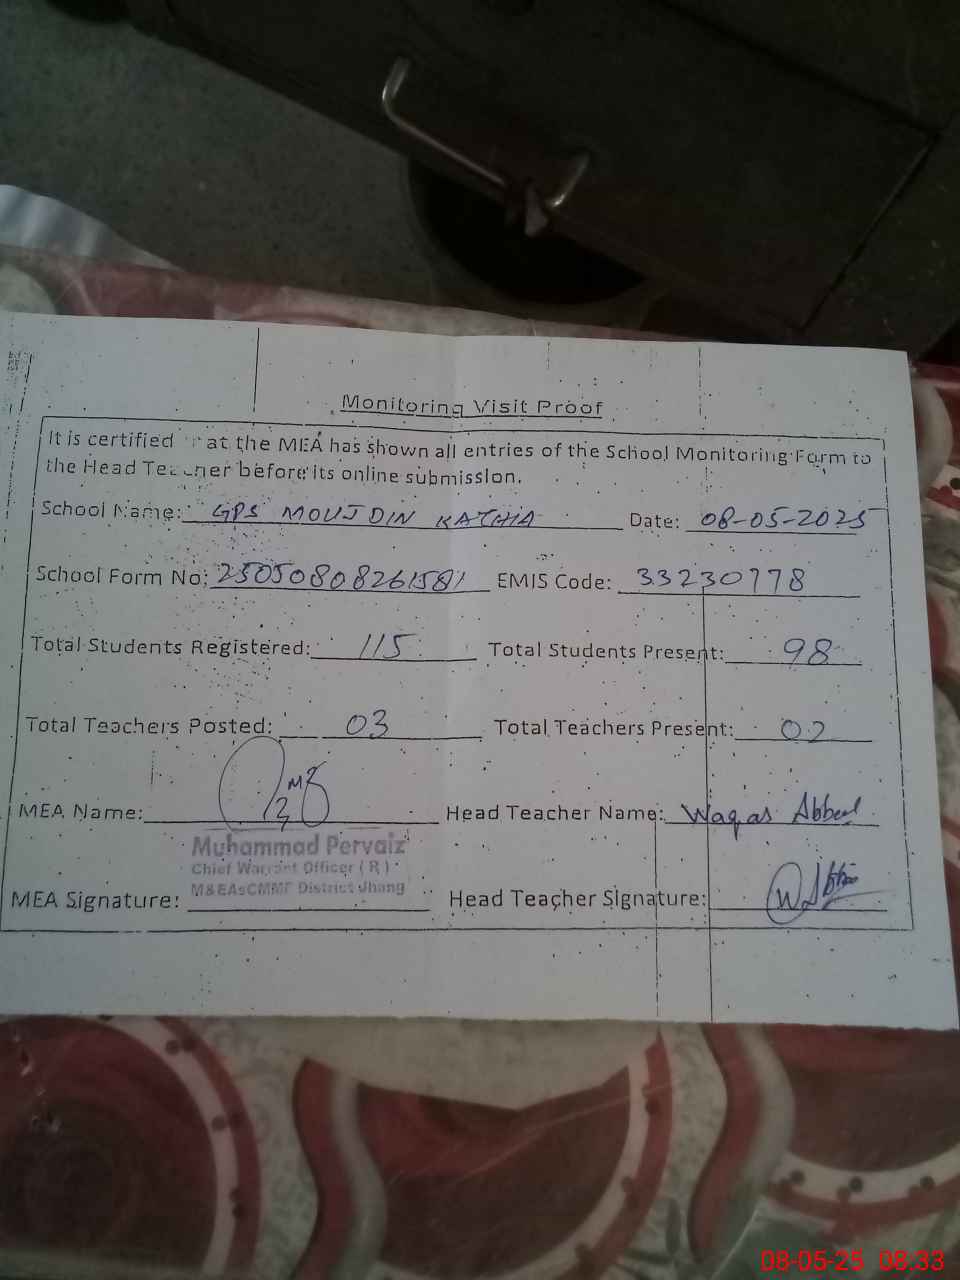 Monitoring Visit Proof
It is certified at the MEA has shown all entries of the School Monitoring Form to
the Head Teacher before its online submission.
School Name: GPS MOUJ DIN KATHIA Date: 08-05-2025
School Form No: 25050808261581 EMIS Code: 33230778
Total Students Registered: 115 Total Students Present: 98
Total Teachers Posted: 03 Total Teachers Present: 02
MEA Name: Head Teacher Name: Waqas Abbas
Muhammad Pervaiz
Chief Warrant Officer (R)
M&EAsCMMF District Jhang
MEA Signature: Head Teacher Signature:
08-05-25 08:33